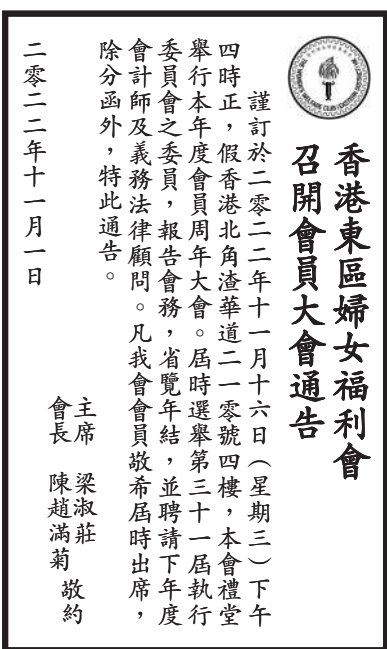 香港東區婦女福利會
召開會員大會通告
謹訂於二零二二年十一月十六日（星期三）下午
四時正，假香港北角渣華道二一零號四樓，本會禮堂
舉行本年度會員周年大會。屆時選舉第三十一屆執行
委員會之委員，報告會務，省覽年結，並聘請下年度
會計師及義務法律顧問。凡我會會員敬希屆時出席，
除分函外，特此通告。
主席 梁淑莊
會長 陳趙滿菊 敬約
二零二二年十一月一日